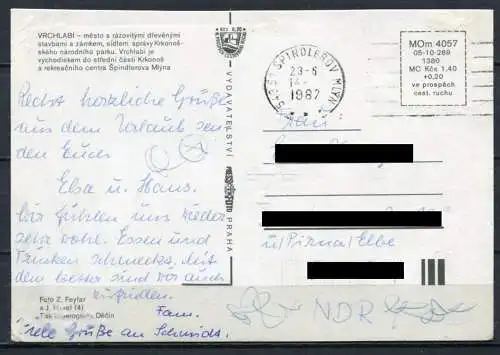 VRCHLABÍ – město s rázovitými dřevěnými
stavbami a zámkem, sídlem správy Krkonoš-
ského národního parku. Vrchlabí je
východiskem do střední části Krkonoš
a rekreačního centra Špindlerova Mlýna
Recht herzliche Grüße
aus dem Urlaub sen
den Euch
Elsa u. Hans.
Wir fühlen uns wieder
sehr wohl. Essen und
Trinken schmeckt. Mit
dem Wetter sind wir auch
zufrieden.
Fam.
Viele Grüße an Schmidt.
Foto Z. Feyfar
a J. (4)
Děčín
Kčs 0,20
VYDAVATELSTVÍ
PRAHA
543 51 ŠPINDLERŮV MLÝN
23-6
14-
1987
MOm: 4057
05-10-289
1380
MC Kčs 1,40
+0,20
ve prospěch
cest. ruchu
u/Pirna/Elbe
NDR